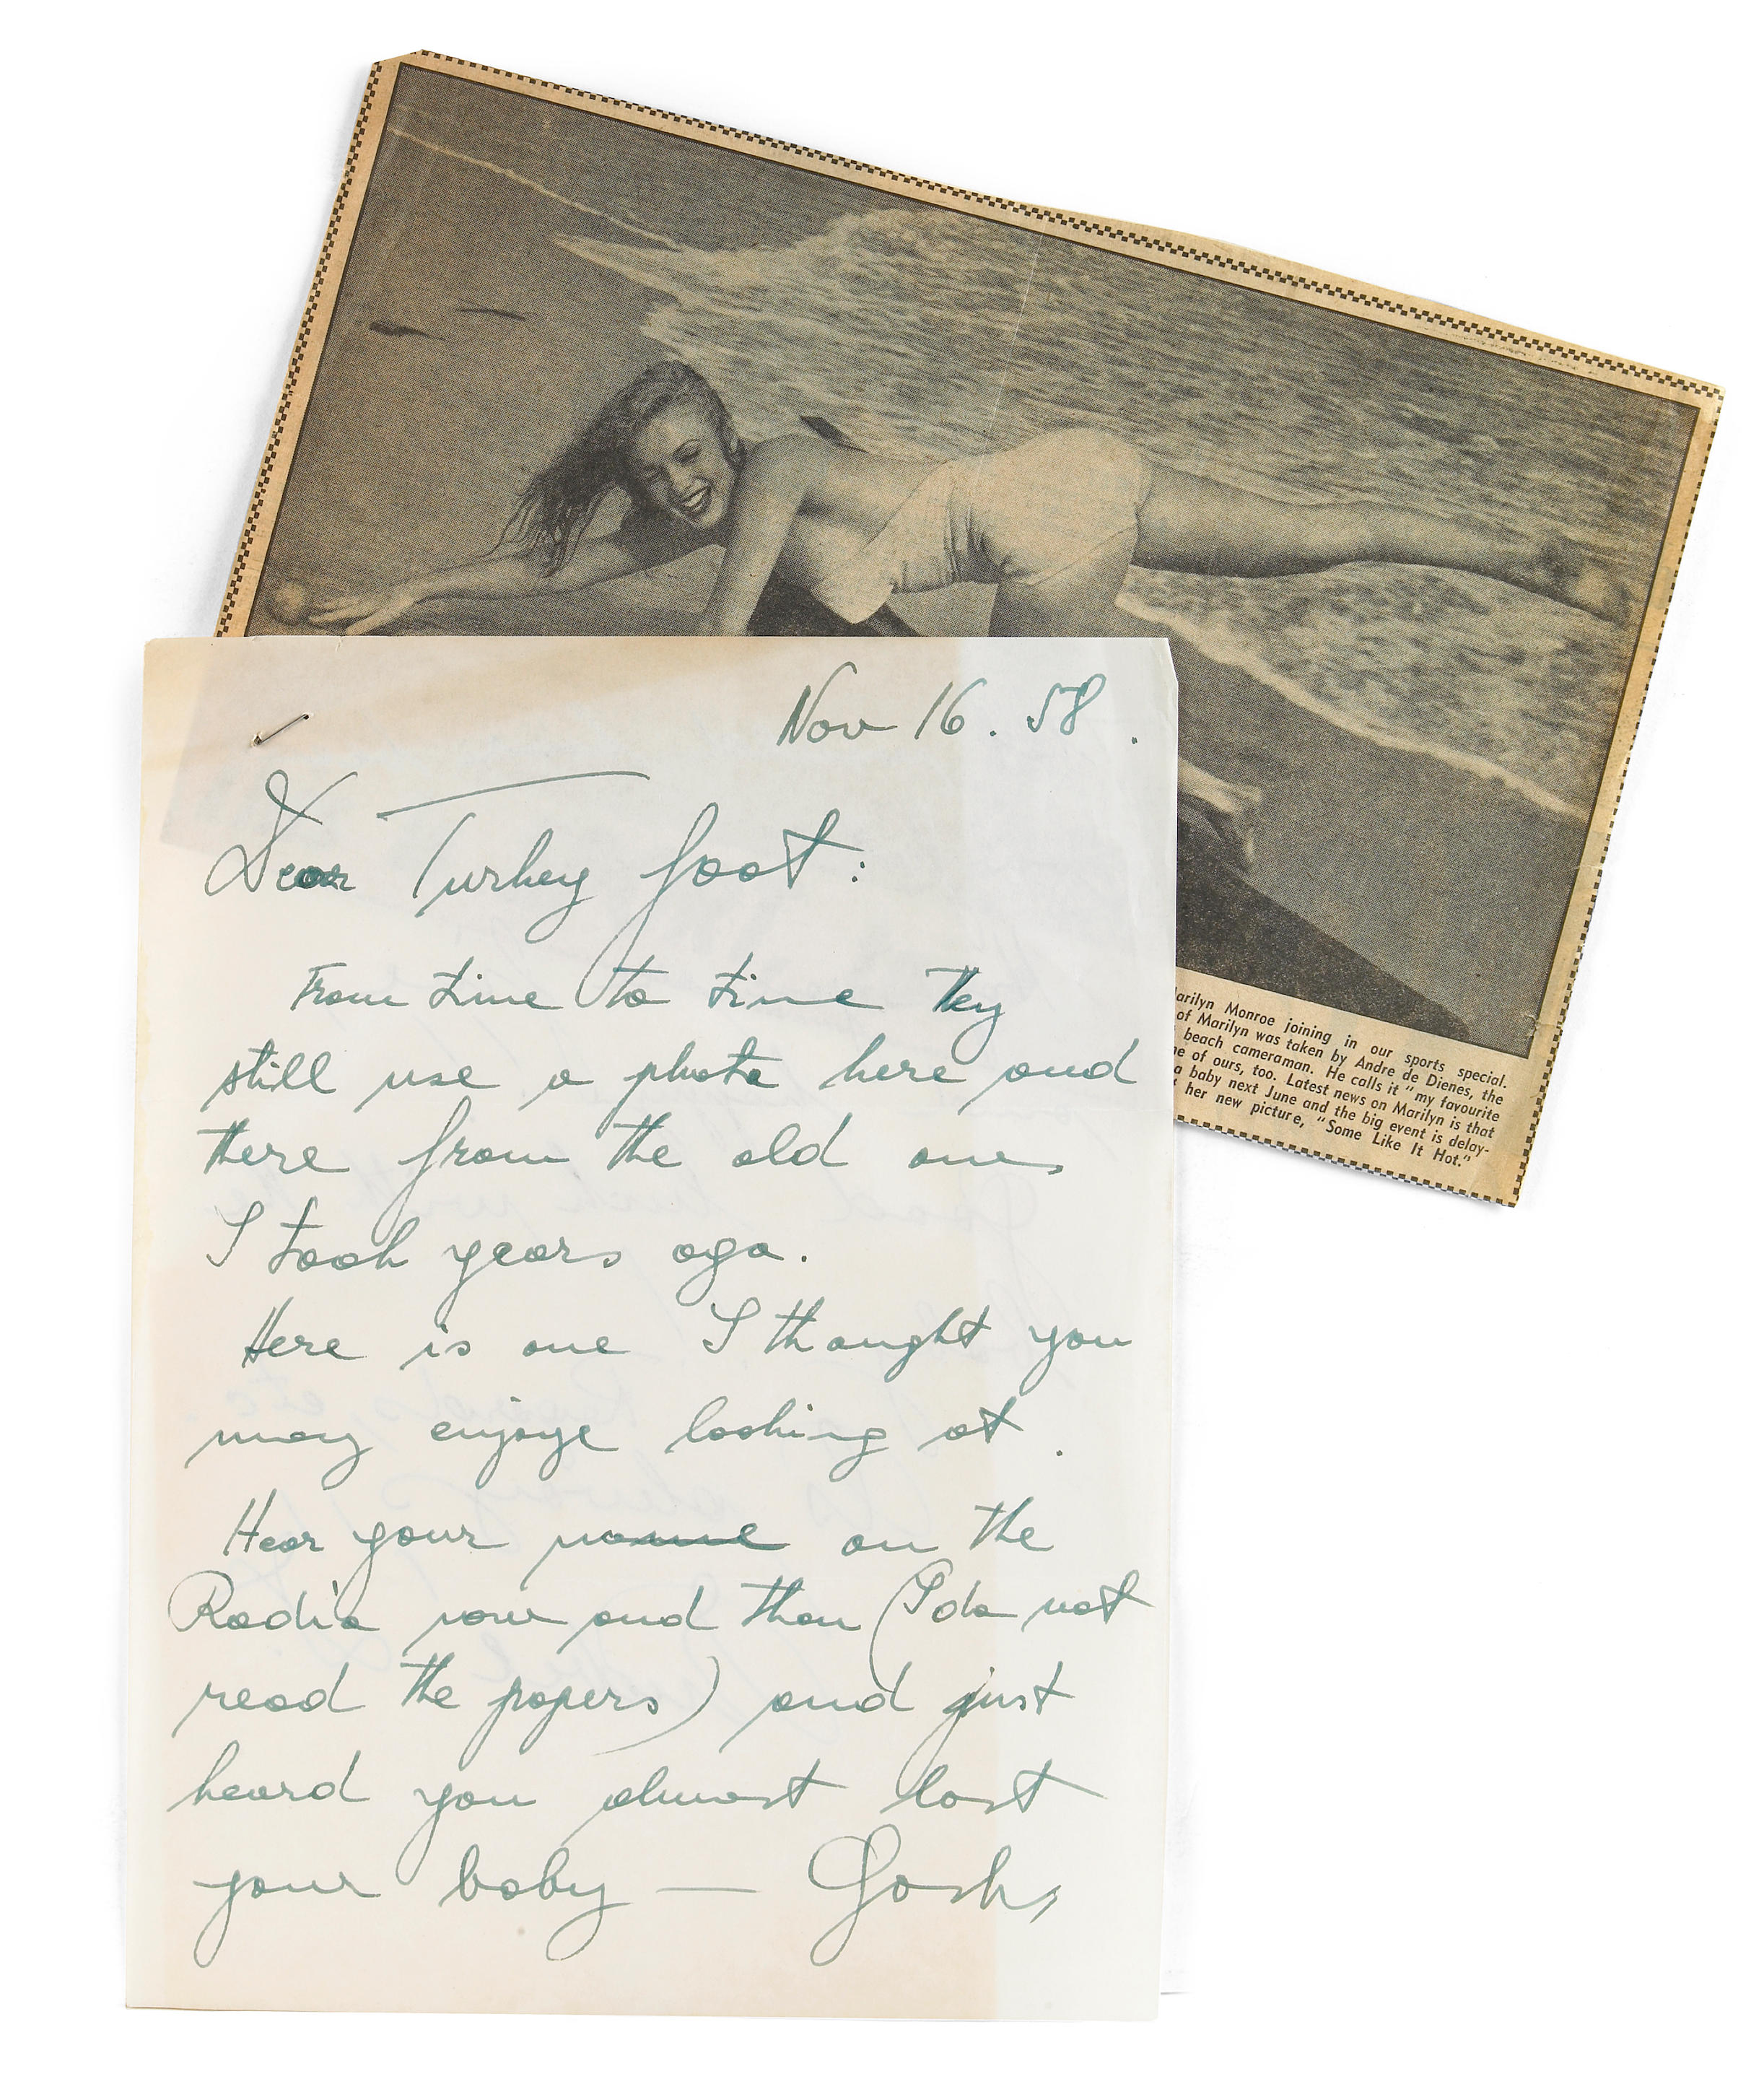 Nov 16. 58.
Dear Turkey foot:
From time to time they
still use a photo here and
there from the old ones
I took years ago.
Here is one I thought you
may enjoye looking at.
Hear your name on the
Radio now and then (I do not
read the papers) and just
heard you almost lost
your baby — Gosh,
arilyn Monroe joining in our sports special.
of Marilyn was taken by Andre de Dienes, the
beach cameraman. He calls it "my favourite
e of ours, too. Latest news on Marilyn is that
a baby next June and the big event is delay-
her new picture, "Some Like It Hot."